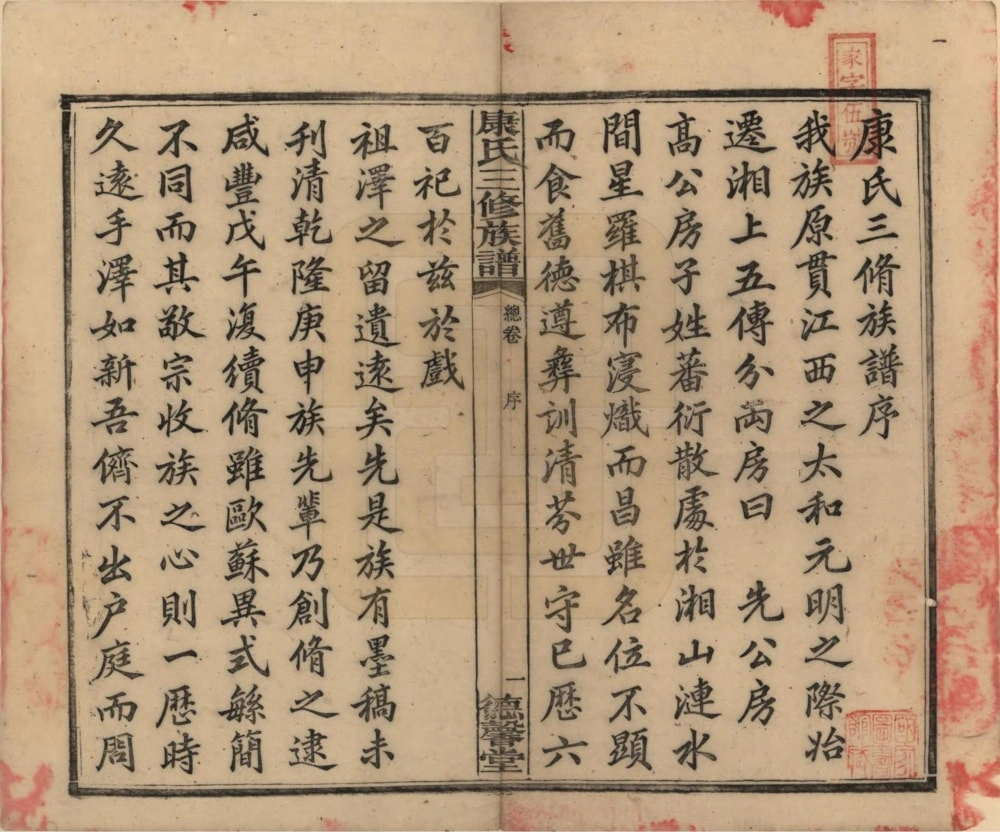 康氏三脩族譜序
我族原貫江西之太和元明之際始
遷湘上五傳分兩房曰　先公房
高公房子姓蕃衍散處於湘山漣水
間星羅棋布寖熾而昌雖名位不顯
而食舊德遵彝訓清芬世守已歷六
康氏三修族譜
總卷
序
一
德馨堂
百祀於兹於戲
祖澤之留遺遠矣先是族有墨稿未
刋清乾隆庚申族先輩乃創脩之逮
咸豐戊午復續脩雖歐蘇異式繇簡
不同而其敬宗收族之心則一歷時
久遠手澤如新吾儕不出户庭而閤
家字伍號